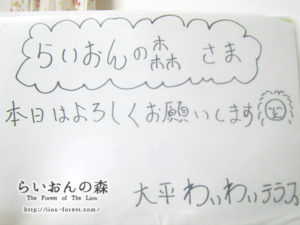 らいおんの森 さま
本日はよろしくお願いします
大平わいわいテラス
らいおんの森
The Forest of The Lion
http://lion-forest.com/